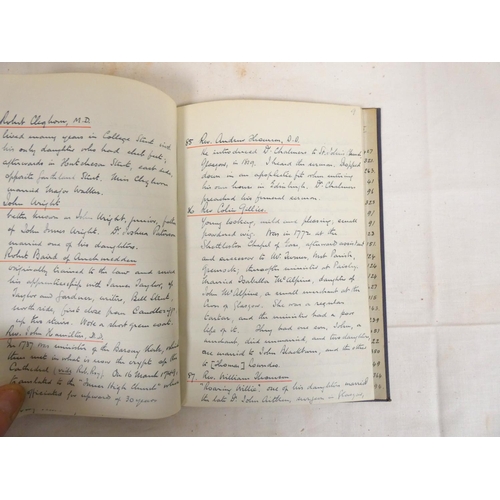 Robert Cleghorn, M.D.
lived many years in College Street and
his only daughter who had club feet,
afterwards in Hutcheson Street, east side,
opposite Garthland Street. Miss Cleghorn
married Major Waller.
John Wright
better known as John Wright, junior, father
of John Innes Wright. Dr. Joshua Paterson
married one of his daughters.
Robert Baird of Auchmedden
originally trained to the law and served
his apprenticeship with James Taylor, of
Taylor and Gardner, writers, Bell Street,
north side, first close from Candleriggs
up two stairs. Wore a short green coat.
Rev. John Hamilton, D.D.
In 1787 was minister of the Barony Kirk, which
then met in what is now the crypt of the
Cathedral,
translated to the "Inner High Church" where
he officiated for upwards of
85 Rev. Andrew Thomson, D.D.
he introduced Dr. Chalmers to St. John's Church
Glasgow, in 1819. I heard the sermon. Dropped
down in an apoplectic fit when entering
his own house in Edinburgh. Dr. Chalmers
preached his funeral sermon.
86 Rev. Colin Gillies.
Young looking, mild and pleasing, small
powdered wig. Was in 1772 at the
Shettleston Chapel of Ease, afterwards assistant
and successor to Mr. Turner, West Parish,
Greenock; thereafter minister at Paisley.
Married Isabella McAlpine, daughter of
John McAlpine, a small merchant at the
Cross of Glasgow. She was a regular
and the minister had a poor
life of it. They had one son, John, a
merchant, died unmarried, and two daughters
one married to John Blackburn, and the other
to [Thomas] Lowndes.
87 Rev. William Thomson
"Roaring Willie" one of his daughters married
the late Dr. John surgeon in Glasgow.